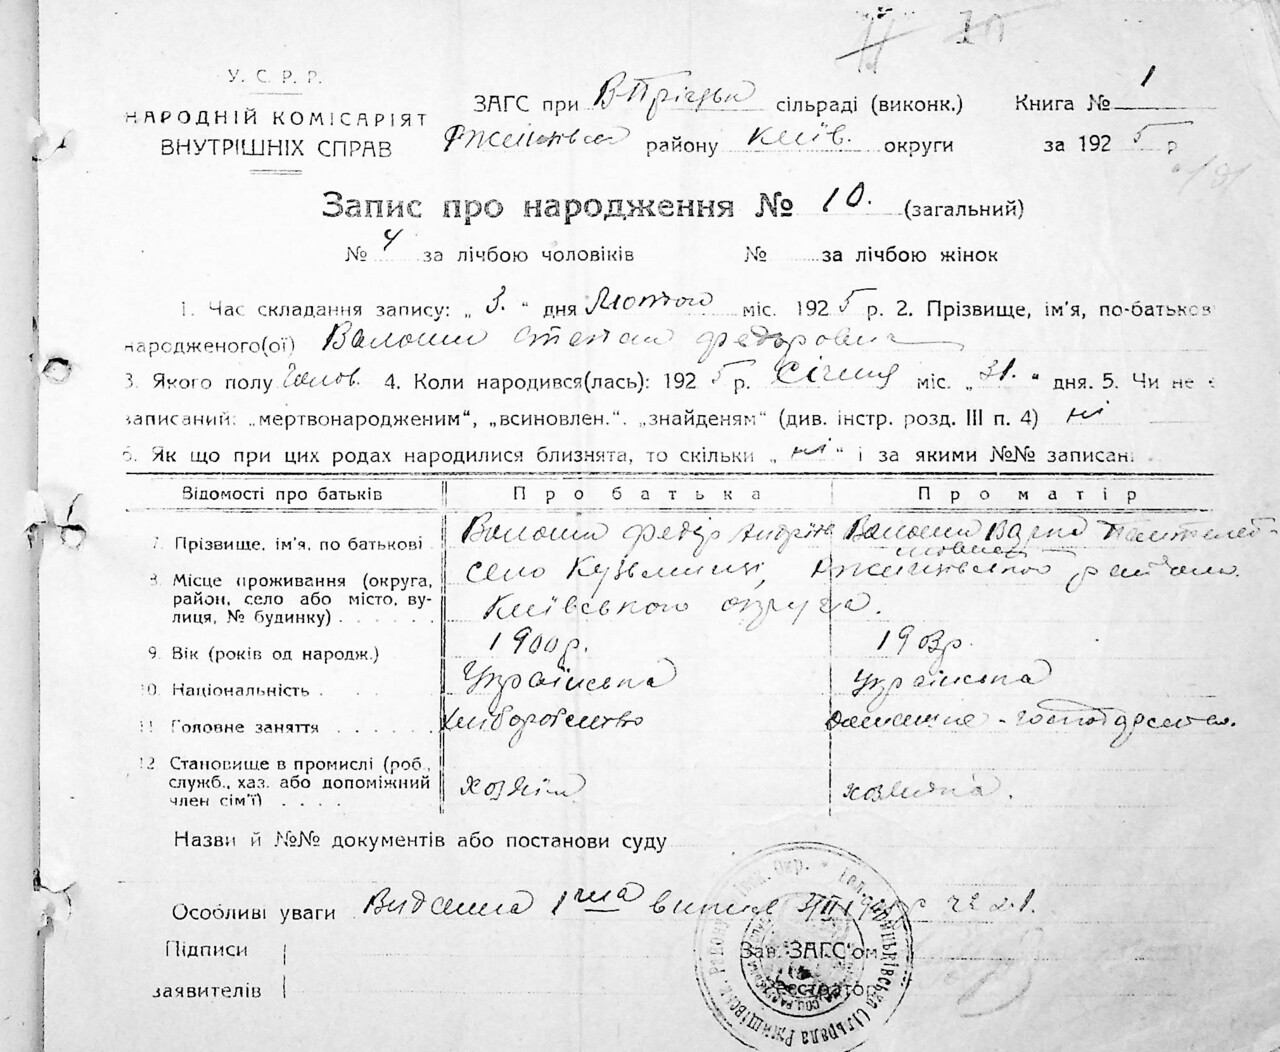 У. С. Р. Р.
НАРОДНІЙ КОМІСАРІЯТ
ВНУТРІШНІХ СПРАВ
ЗАГС при сільраді (виконк.) Книга № 1
району Київ. округи за 1925 р
Запис про народження № 10. (загальний)
№ 4 за лічбою чоловіків № за лічбою жінок
1. Час складання запису: „ 3. “ дня Лютого міс. 1925 р. 2. Прізвище, ім'я, по-батьков
народженого(ої) Волошин Степан Федорович
3. Якого полу Чолов. 4. Коли народився(лась): 1925 р. Січня міс. „ 31. “ дня. 5. Чи не є
записаний: „мертвонародженим“, „всиновлен.“. „знайденям“ (див. інстр. розд. III п. 4) ні
6. Як що при цих родах народилися близнята, то скільки „ ні “ і за якими №№ записані
Відомості про батьків Про батька Про матір
7. Прізвище, ім'я, по батькові Волошин Федір Андрій Волошин
8. Місце проживання (округа, район, село або місто, вулиця, № будинку) село Кузьминці, району
Київського округа.
9. Вік (років од народж.) 1900р. 1903р.
10. Національність Українська Українська
11 Головне заняття Хліборобство домашнє - господарство.
12 Становище в промислі (роб., служб., хаз. або допоміжний член сім'ї) хозяїн хозяйка.
Назви й №№ документів або постанови суду
Особливі уваги Видана 1 випис
Підписи
заявителів
Зав. ЗАГС'ом
Реєстратор